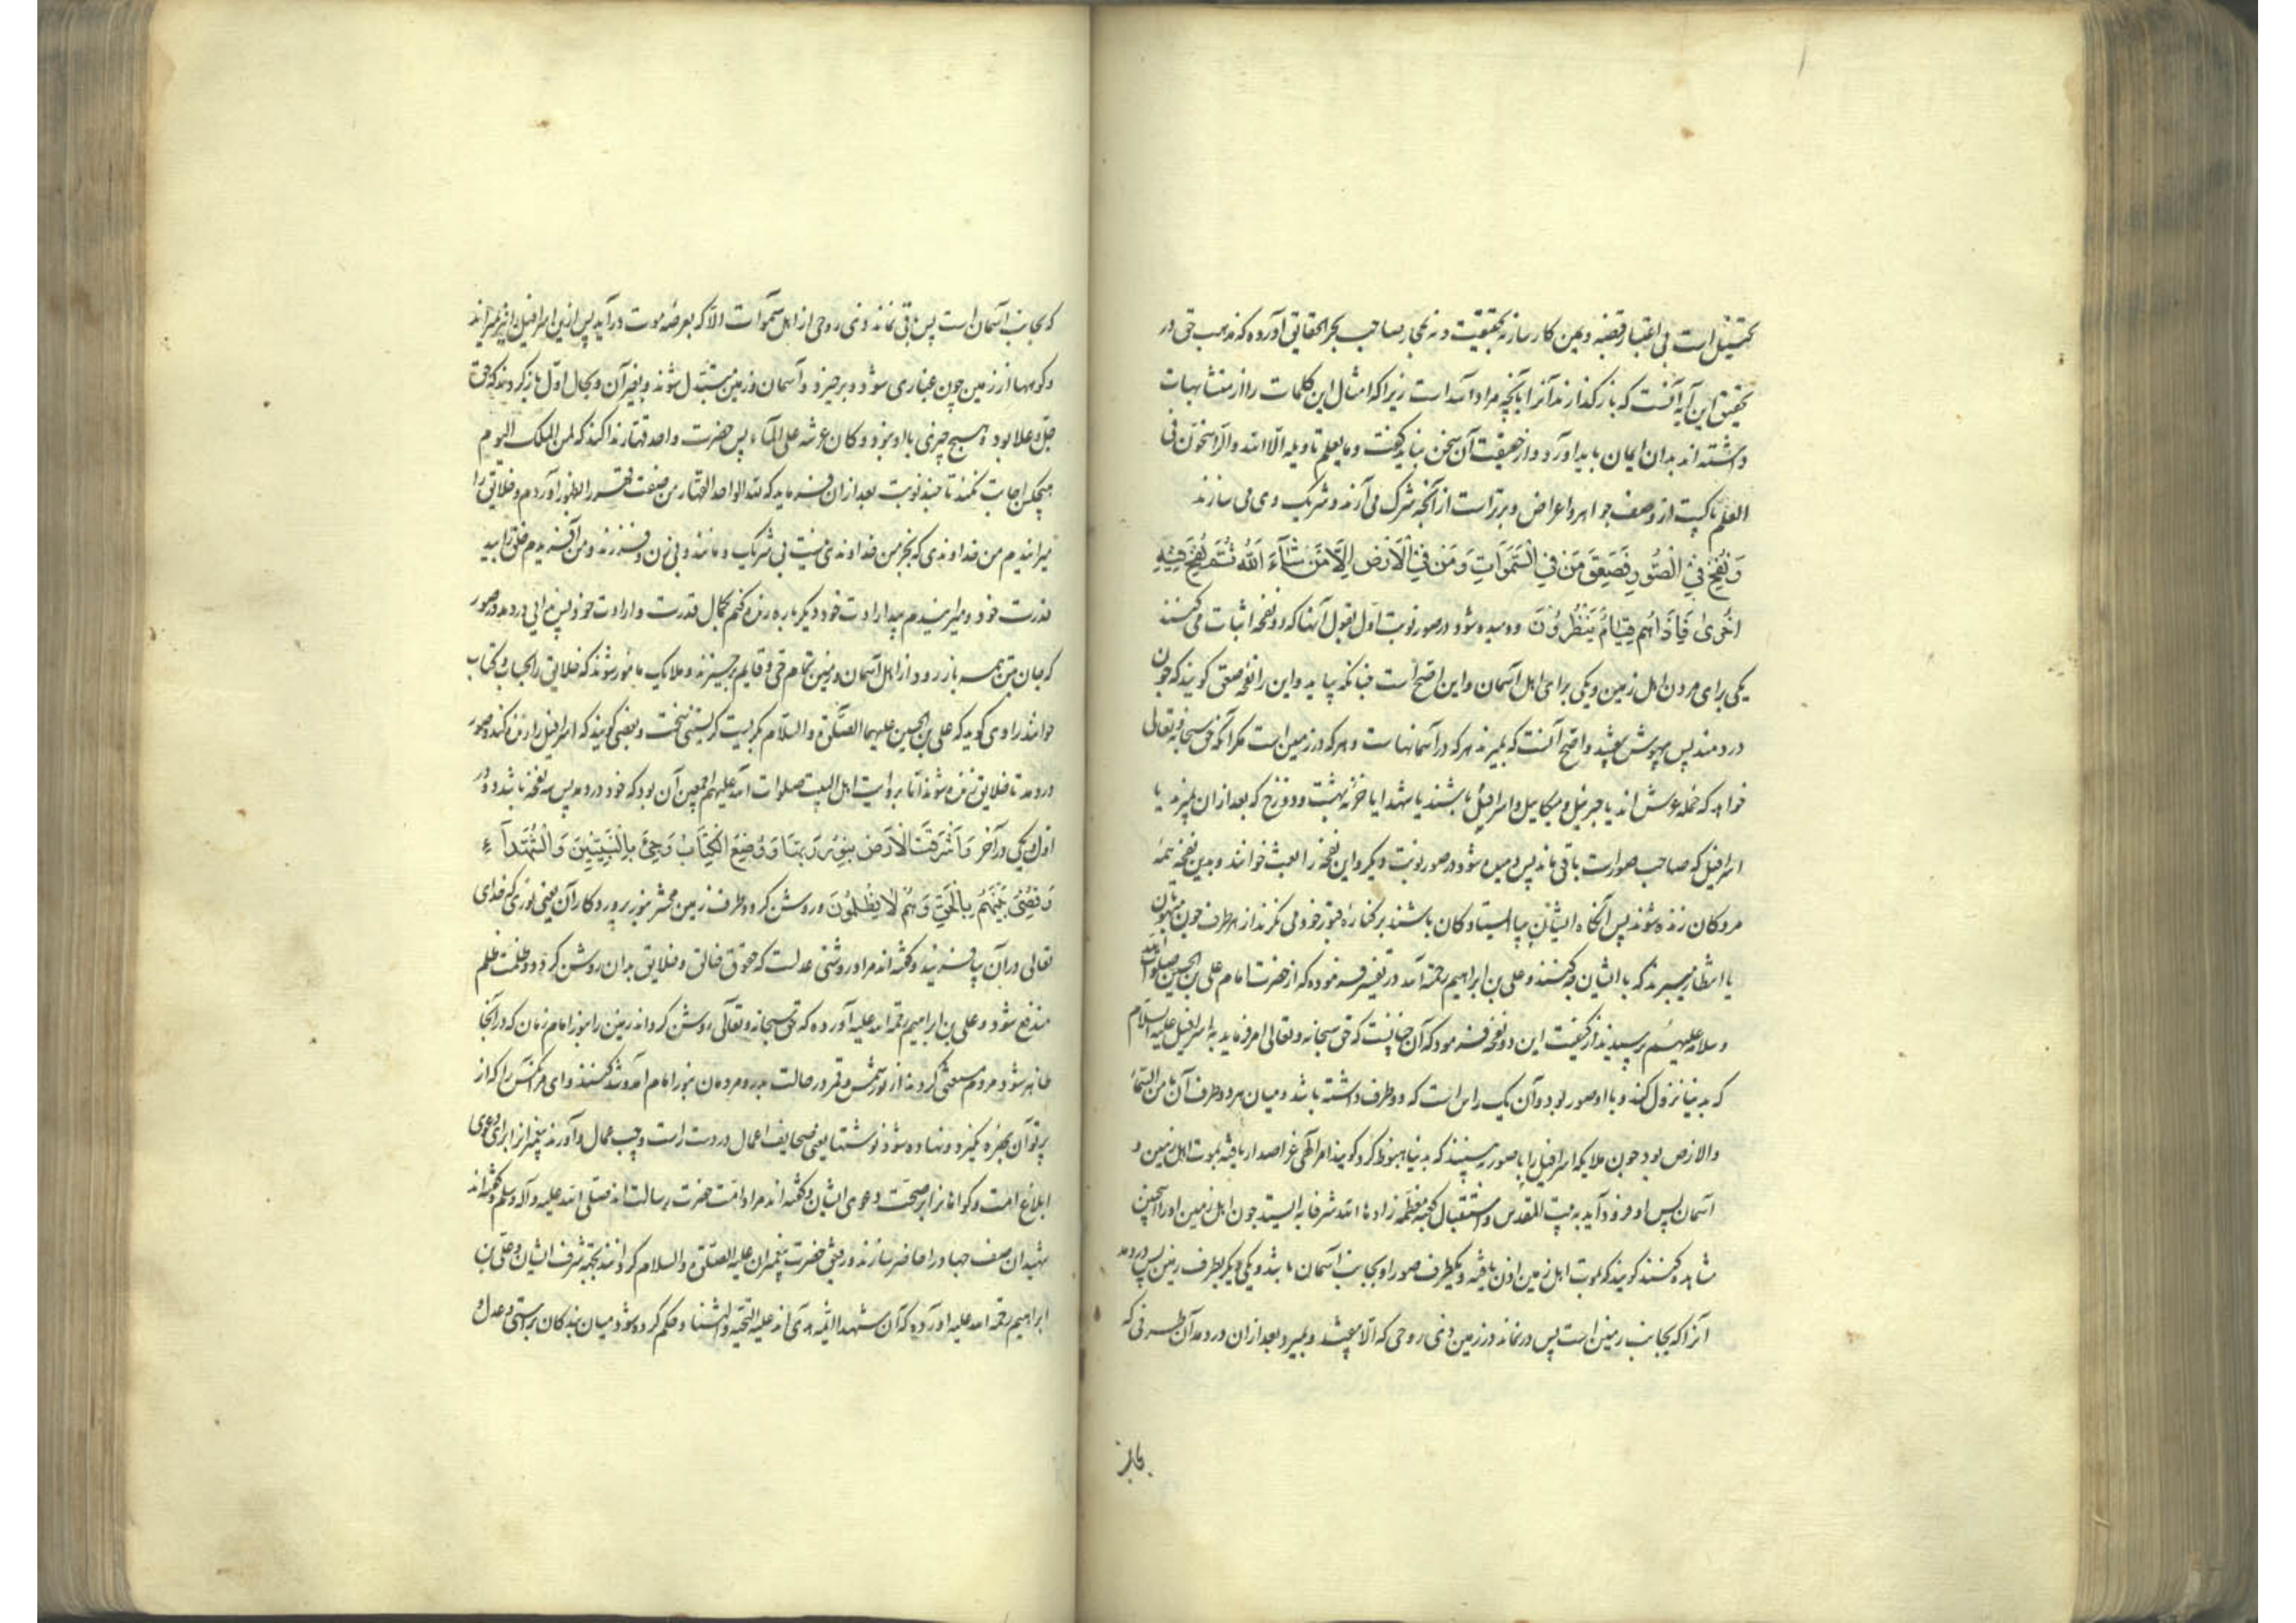 تمثیل است بی اعتبار قبضه و یمین کار سازنه بحقیقت و نه بمجاز صاحب بحر الحقایق آورده که مذهب حق در
تحقیق این آیه آنست که بازگذارند آنرا بآنچه مراد الله است زیرا که امثال این کلمات را از متشابهات
داشته اند بدان ایمان باید آورد و از حقیقت آن سخن نباید گفت و ما یعلم تاویله الا الله والراسخون فی
العلم پاکیست از وصف جواهر و اعراض و برتر است از آنچه شرک می آرند و شریک وی می سازند
وَنُفِخَ فِي الصُّورِ فَصَعِقَ مَنْ فِي السَّمَوَاتِ وَمَنْ فِي الْاَرْضِ اِلَّا مَنْ شَآءَ اللهُ ثُمَّ نُفِخَ فِيهِ
اُخْرٰى فَاِذَا هُمْ قِيَامٌ يَنْظُرُونَ و دمیده شود در صور نوبت اول بقول آنها که دو نفخه اثبات می کنند
یکی برای مردن اهل زمین و یکی برای اهل آسمان و این اصح است چنانکه بیاید و این را نفخه صعق گویند که چون
دردمند پس بیهوش بیفتد و اصح آنست که بمیرند هر که در آسمانهاست و هر که در زمین است مگر آنکه حق سبحانه و تعالی
خواهد که حمله عرش اند یا جبریل و میکاییل و اسرافیل باشند یا شهدا یا خزنه بهشت و دوزخ که بعد از ان بمیرند یا
اسرافیل که صاحب صور است باقی ماند پس دمیده شود در صور نوبت دیگر و این نفخه را بعث خوانند و بدین نفخه همه
مردگان زنده شوند پس آنگاه ایشان بپا ایستادگان باشند بر کناره قبور خود می نگرند از هر طرف چون مبهوتان
یا انتظار میبرند که با ایشان چه کنند و علی بن ابراهیم رحمة الله در تفسیر فرموده که از حضرت امام علی بن الحسین صلوات الله
و سلامه علیهم پرسیدند از کیفیت این دو نفخه فرمود که آن چنانست که حق سبحانه و تعالی امر فرماید به اسرافیل علیه السلام
که بدنیا نزول کند و با او صور بود و آن یک راس است که دو طرف داشته باشد و میان هر دو طرف آن ما من السماء
والارض بود چون ملایکه اسرافیل را با صور ببینند که بدنیا هبوط کرد گویند امر الهی عز اصداره یافته بموت اهل زمین و
آسمان پس او فرود آید به بیت المقدس و استقبال کعبه معظمه زادها الله شرفا به ایستد چون اهل زمین او را اینچنین
مشاهده کنند گویند که موت اهل زمین اذن یافته و یکطرف صور او بجانب آسمان باشد و یکی دیگر بطرف زمین پس دردمد
آنرا که بجانب زمین است پس در نماند در زمین ذی روحی که الا بیفتد و بمیرد بعد از ان دردمد آن طرفی که
بجانب
که بجانب آسمان است پس باقی نماند ذی روحی از اهل سموات الا که بعرصه موت درآید پس از این اسرافیل را نیز بمیرانند
و کوهها از زمین چون غباری شود و برخیزد و آسمان و زمین متبدل شوند و بغیر آن و بحال اول باز گردند که حق
جل و علا بود و هیچ چیزی با او نبود و کان عرشه علی الماء پس حضرت واحد قهار ندا کند که لمن الملک الیوم
هیچکس اجابت نکند تا چند نوبت بعد از ان فرماید که لله الواحد القهار من صفت قهر را بظهور آوردم و خلایق را
میراندم من خداوندی که بجز من خداوندی نیست بی شریک و مانند و بی زن و فرزند و من آفریدم خلق را بید
قدرت خود و میرانیدم بید ارادت خود و دیگر باره زنده کنم بکمال قدرت و ارادت خود پس درایی دردمد در صور
که جان متن همه باز رود از اهل آسمان و زمین تمام حی و قایم برخیزند و ملایک مامور شوند که خلایق را بحساب و کتاب
خوانند راوی گوید که علی بن الحسین علیهما الصلوة والسلام بگریست گریستنی سخت و بعضی گویند که اسرافیل را زنده کند و صور
دردمد تا خلایق زنده شوند اما بروایت اهل البیت صلوات الله علیهم اجمعین آن بود که خود دردمد پس سه نفخه باشد دو در
اول و یکی در آخر وَاَشْرَقَتِ الْاَرْضُ بِنُورِ رَبِّهَا وَوُضِعَ الْكِتَابُ وَجِيءَ بِالنَّبِيِّينَ وَالشُّهَدَآءِ
وَقُضِيَ بَيْنَهُمْ بِالْحَقِّ وَهُمْ لَا يُظْلَمُونَ و روشن گردد طرف زمین محشر بنور پروردگار آن یعنی نوری که خدای
تعالی در آن بیافریند و گفته اند مراد روشنی عدلست که حقوق خالق و خلایق بدان روشن گردد و ظلمت ظلم
مندفع شود و علی بن ابراهیم رحمة الله علیه آورده که حق سبحانه و تعالی روشن گرداند زمین را بنور امام زمان که در آنجا
ظاهر شود و مردم مستغنی گردند از نور شمس و قمر در حالت بدر و مردمان بنور امام آمد و شد کنند و ای مر آنکس را که از
پرتو آن بهره نگیرد و نهاده شود نوشتها یعنی صحایف اعمال در دست راست و چپ عمال و آورند پیغمبر از برای دعوی
ابلاغ امت و گواهانرا بر صحت دعوی ایشان و گفته اند مراد امت حضرت رسالت اند صلی الله علیه و آله وسلم و گفته اند
شهیدان صف جهاد را حاضر سازند و رفیق حضرت پیغمبران علیه الصلوة والسلام گردانند بجهة شرف ایشان و علی بن
ابراهیم رحمة الله علیه آورده که آن شهدا ائمه هدی اند علیه التحیه والثنا و حکم کرده شود میان بندگان براستی و عدل و